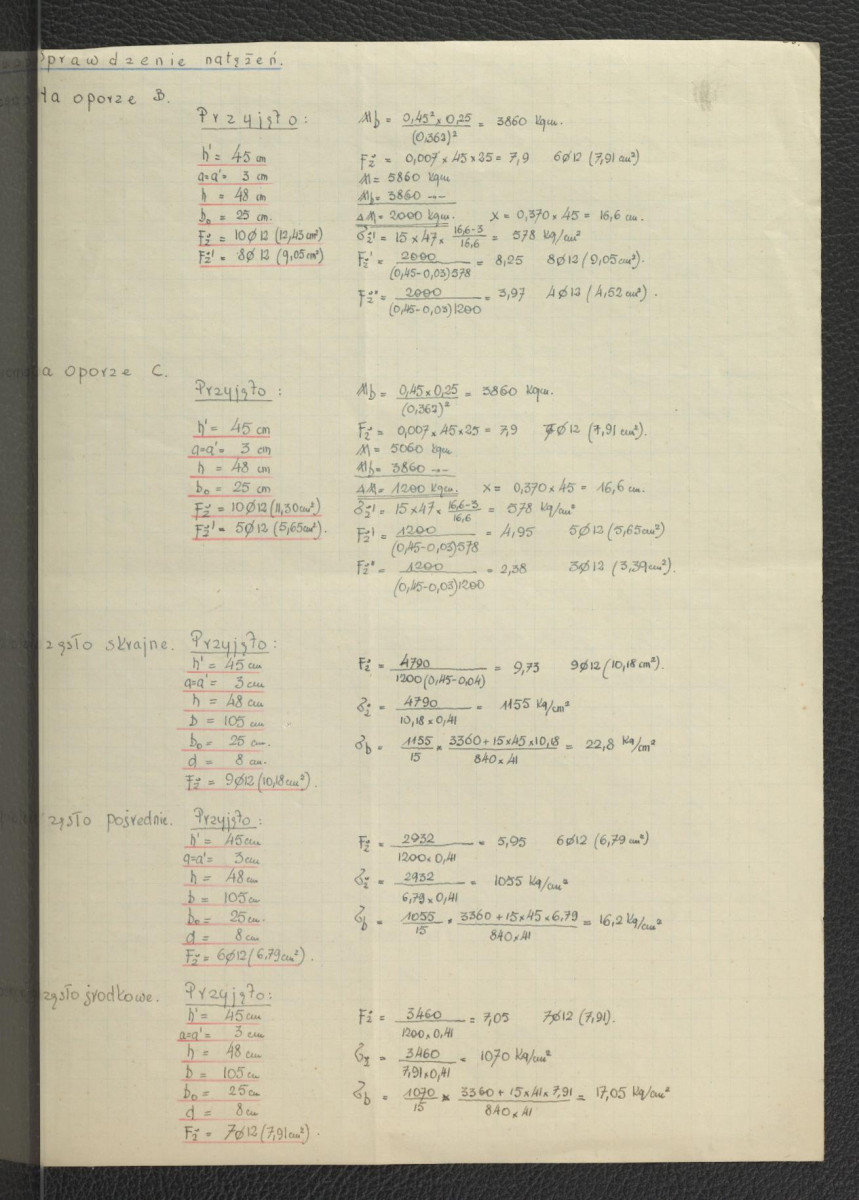 prawdzenie natężeń.
a oporze B.
Przyjęto:
h' = 45 cm
a=a' = 3 cm
h = 48 cm
b₀ = 25 cm.
Fż = 10ϕ12 (12,43 cm²)
Fż' = 8ϕ12 (9,05 cm²)
Mb = 0,45² x 0,25 / (0,362)² = 3860 kgm.
Fż = 0,007 x 45 x 25 = 7,9 6ϕ12 (7,91 cm²)
M = 5860 kgm
Mb = 3860 -"-
ΔM = 2000 kgm. x = 0,370 x 45 = 16,6 cm.
σż' = 15 x 47 x 16,6-3 / 16,6 = 578 kg/cm²
Fż' = 2000 / (0,45-0,03)578 = 8,25 8ϕ12 (9,05 cm²).
Fż" = 2000 / (0,45-0,03)1200 = 3,97 4ϕ12 (4,52 cm²).
a oporze C.
Przyjęto:
h' = 45 cm
a=a' = 3 cm
h = 48 cm
b₀ = 25 cm
Fż = 10ϕ12 (11,30 cm²)
Fż' = 5ϕ12 (5,65 cm²).
Mb = 0,45 x 0,25 / (0,362)² = 3860 kgm.
Fż = 0,007 x 45 x 25 = 7,9 7ϕ12 (7,91 cm²).
M = 5060 kgm
Mb = 3860 -"-
ΔM = 1200 kgm. x = 0,370 x 45 = 16,6 cm.
σż' = 15 x 47 x 16,6-3 / 16,6 = 578 kg/cm²
Fż' = 1200 / (0,45-0,03)578 = 4,95 5ϕ12 (5,65 cm²)
Fż" = 1200 / (0,45-0,03)1200 = 2,38 3ϕ12 (3,39 cm²).
zęsło skrajne.
Przyjęto:
h' = 45 cm
a=a' = 3 cm
h = 48 cm
b = 105 cm
b₀ = 25 cm.
d = 8 cm.
Fż = 9ϕ12 (10,18 cm²).
Fż = 4790 / 1200(0,45-0,04) = 9,73 9ϕ12 (10,18 cm²).
σż = 4790 / 10,18 x 0,41 = 1155 kg/cm²
σb = 1155 / 15 x 3360 + 15 x 45 x 10,18 / 840 x 41 = 22,8 kg/cm²
zęsło pośrednie.
Przyjęto:
h' = 45 cm
a=a' = 3 cm
h = 48 cm
b = 105 cm
b₀ = 25 cm.
d = 8 cm
Fż = 6ϕ12 (6,79 cm²).
Fż = 2932 / 1200 x 0,41 = 5,95 6ϕ12 (6,79 cm²)
σż = 2932 / 6,79 x 0,41 = 1055 kg/cm²
σb = 1055 / 15 x 3360 + 15 x 45 x 6,79 / 840 x 41 = 16,2 kg/cm²
zęsło środkowe.
Przyjęto:
h' = 45 cm
a=a' = 3 cm
h = 48 cm
b = 105 cm
b₀ = 25 cm
d = 8 cm
Fż = 7ϕ12 (7,91 cm²).
Fż = 3460 / 1200 x 0,41 = 7,05 7ϕ12 (7,91).
σż = 3460 / 7,91 x 0,41 = 1070 kg/cm²
σb = 1070 / 15 x 3360 + 15 x 41 x 7,91 / 840 x 41 = 17,05 kg/cm²